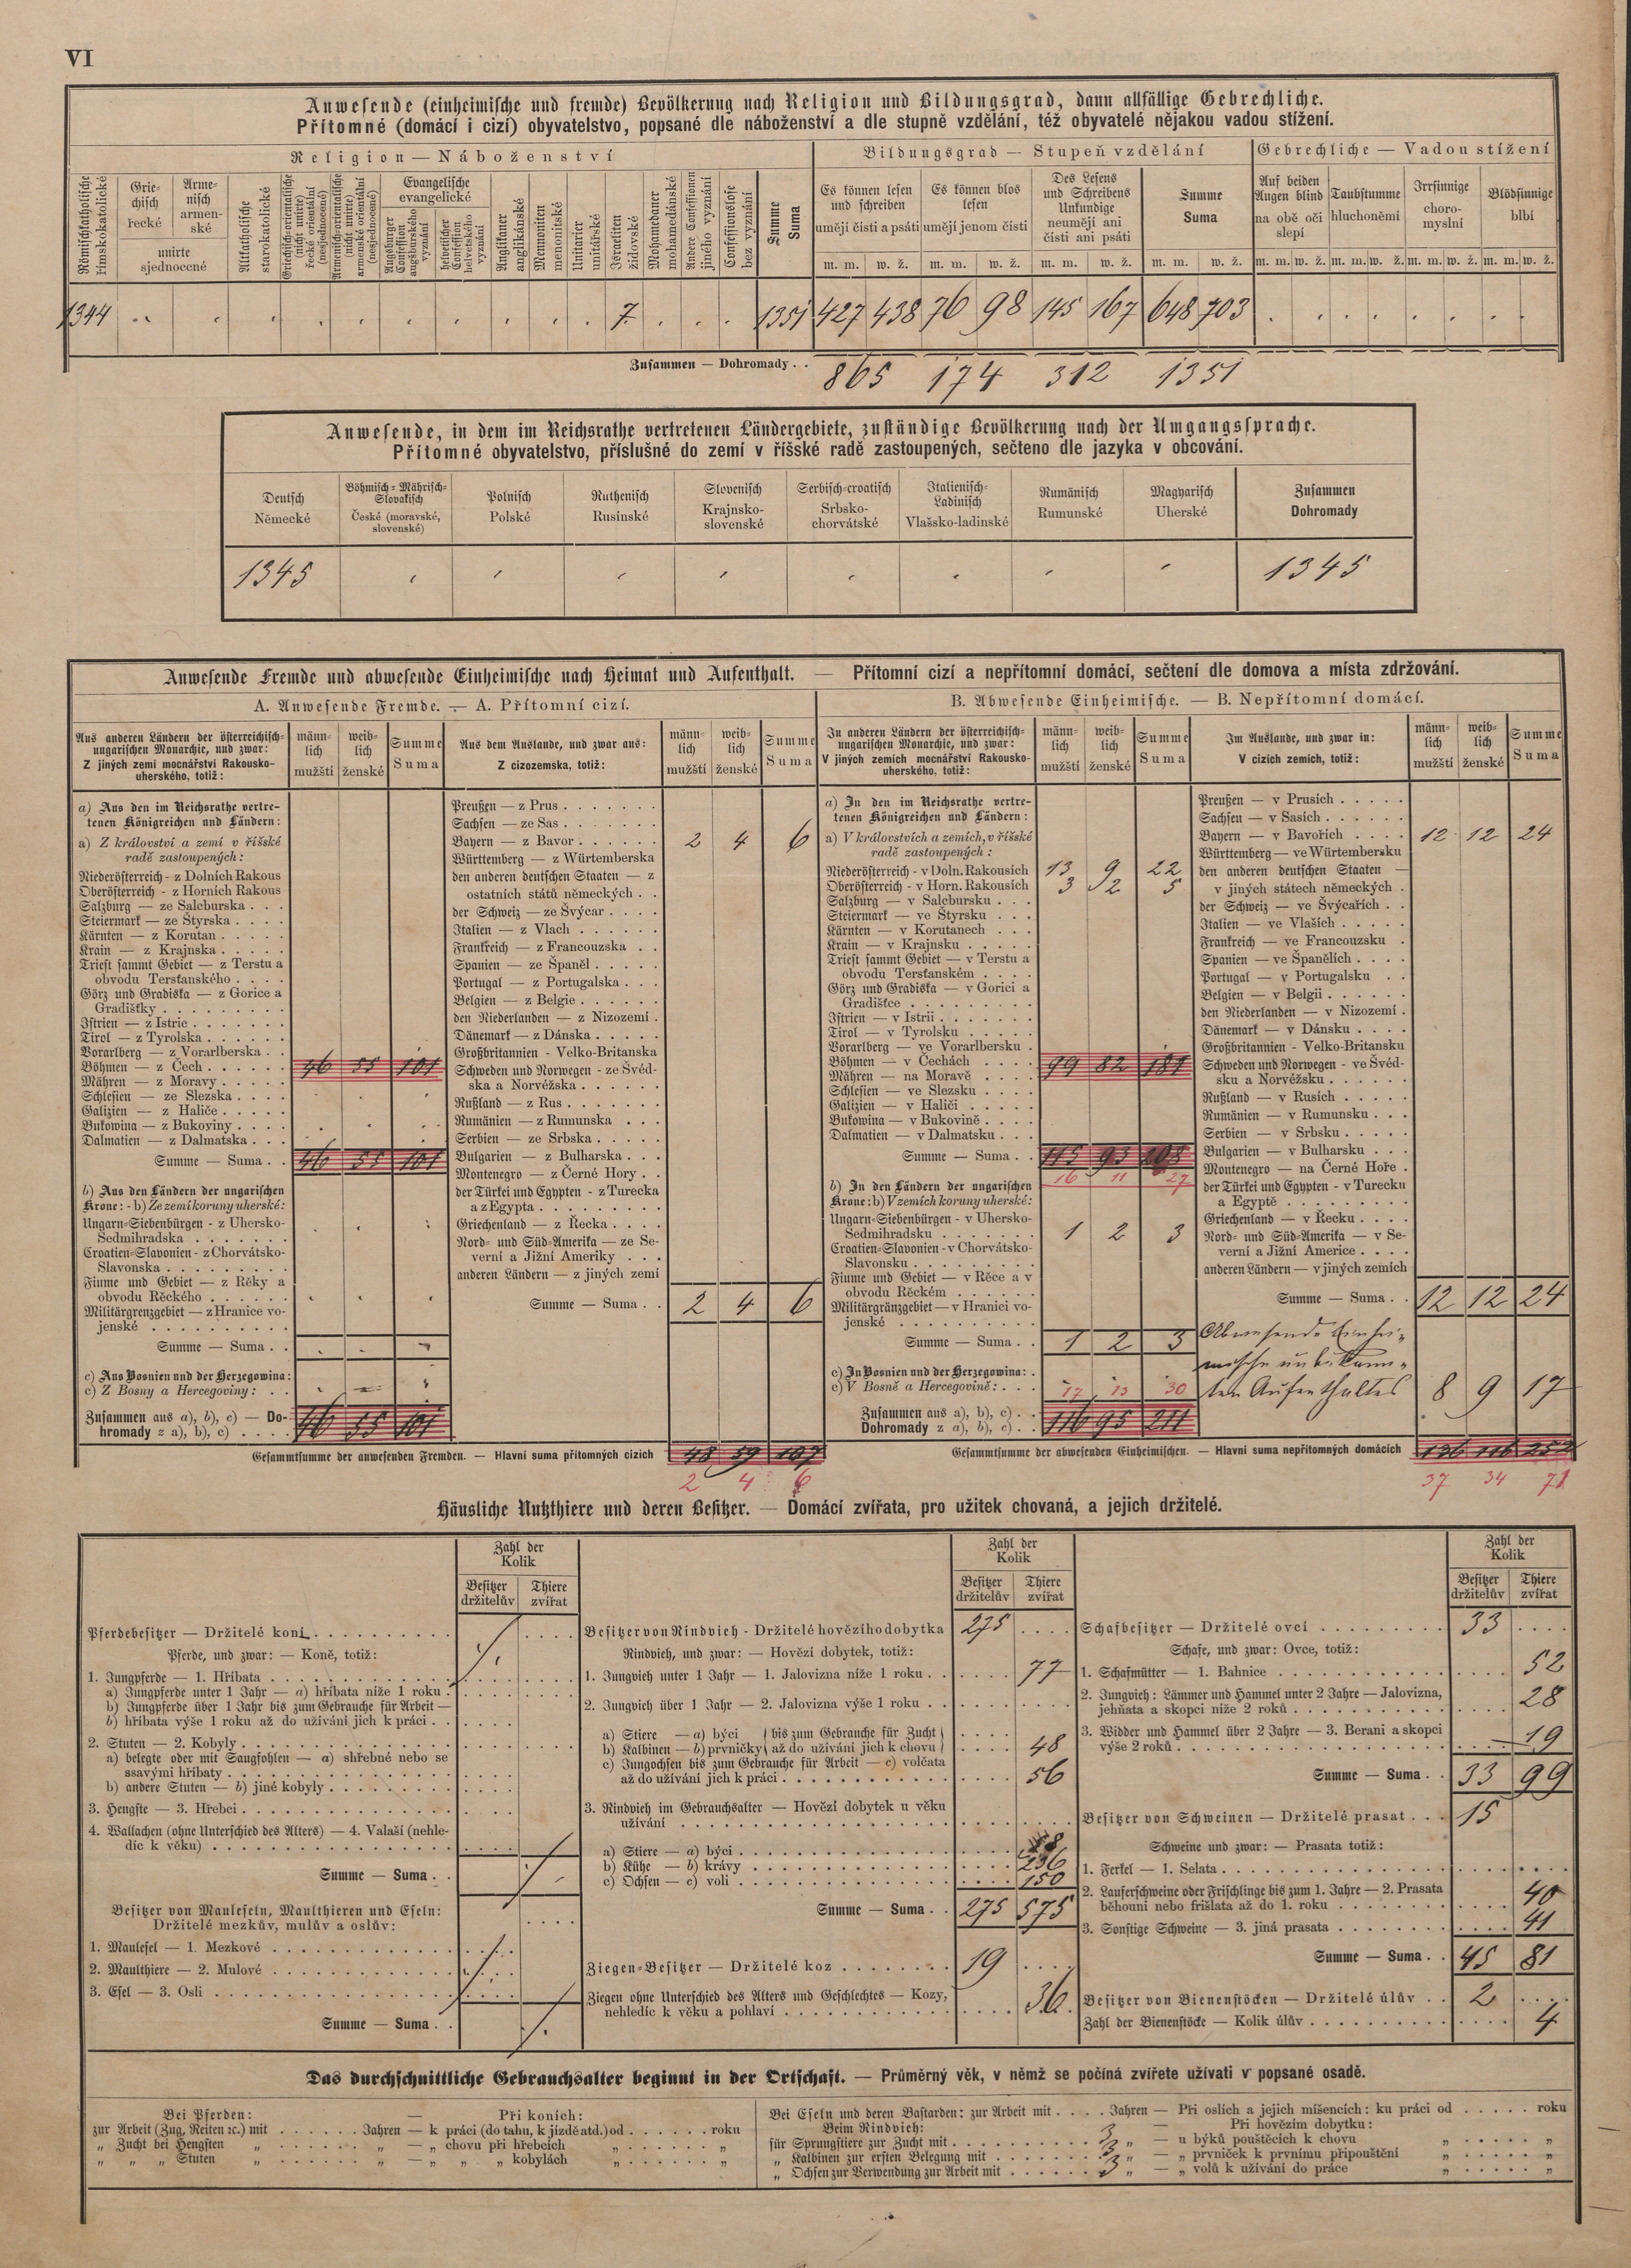 VI
Anwesende (einheimische und fremde) Bevölkerung nach Religion und Bildungsgrad, dann allfällige Gebrechliche.
Přítomné (domácí i cizí) obyvatelstvo, popsané dle náboženství a dle stupně vzdělání, též obyvatelé nějakou vadou stížení.
Religion — Náboženství
Bildungsgrad — Stupeň vzdělání
Gebrechliche — Vadou stížení
Römischkatholische římskokatolické
Griechisch řecké
Armenisch armenské
unirte sjednocené
Altkatholische starokatolické
Griechisch-orientalische (nicht unirte) řecké orientální (nesjednocené)
Armenisch-orientalische (nicht unirte) armenské orientální (nesjednocené)
Evangelische evangelické
Augsburger Confession augšburského vyznání
helvetischer Confession helvetského vyznání
Anglikaner anglikánské
Mennoniten menonitské
Unitarier unitářské
Israeliten židovské
Mohamedaner mohamedánské
Andere Confessionen jiného vyznání
Confessionslose bez vyznání
Summe Suma
Es können lesen und schreiben umějí čísti a psáti
Es können blos lesen umějí jenom čísti
Des Lesens und Schreibens Unkundige neumějí ani čísti ani psáti
Summe Suma
Auf beiden Augen blind na obě oči slepí
Taubstumme hluchoněmí
Irrsinnige choromyslní
Blödsinnige blbí
m. m. w. ž. m. m. w. ž. m. m. w. ž. m. m. w. ž. m. m. w. ž. m. m. w. ž. m. m. w. ž. m. m. w. ž.
1344 7 1351 427 438 76 98 145 167 648 703
Zusammen — Dohromady . . 865 174 312 1351
Anwesende, in dem im Reichsrathe vertretenen Ländergebiete, zuständige Bevölkerung nach der Umgangssprache.
Přítomné obyvatelstvo, příslušné do zemí v říšské radě zastoupených, sečteno dle jazyka v obcování.
Deutsch Německé
Böhmisch-Mährisch-Slovakisch České (moravské, slovenské)
Polnisch Polské
Ruthenisch Rusínské
Slovenisch Krajnsko-slovenské
Serbisch-croatisch Srbsko-chorvátské
Italienisch-Ladinisch Vlašsko-ladinské
Rumänisch Rumunské
Magyarisch Uherské
Zusammen Dohromady
1345 1345
Anwesende Fremde und abwesende Einheimische nach Heimat und Aufenthalt. — Přítomní cizí a nepřítomní domácí, sečtení dle domova a místa zdržování.
A. Anwesende Fremde. — A. Přítomní cizí.
B. Abwesende Einheimische. — B. Nepřítomní domácí.
Aus anderen Ländern der österreichisch-ungarischen Monarchie, und zwar:
Z jiných zemí mocnářství Rakousko-uherského, totiž:
männlich mužští
weiblich ženské
Summe Suma
a) Aus den im Reichsrathe vertretenen Königreichen und Ländern:
a) Z království a zemí v říšské radě zastoupených:
Niederösterreich - z Dolních Rakous
Oberösterreich - z Horních Rakous
Salzburg — ze Salcburska . . .
Steiermark — ze Štyrska . . . .
Kärnten — z Korutan . . . . .
Krain — z Krajnska . . . . .
Triest sammt Gebiet — z Terstu a obvodu Terstanského . . . .
Görz und Gradiska — z Gorice a Gradištky . . . . . . . .
Istrien — z Istrie . . . . . . .
Tirol — z Tyrolska . . . . . .
Vorarlberg — z Vorarlberska . .
Böhmen — z Čech . . . . . . 46 55 101
Mähren — z Moravy . . . . .
Schlesien — ze Slezska . . . .
Galizien — z Haliče . . . . .
Bukowina — z Bukoviny . . .
Dalmatien — z Dalmatska . . .
Summe — Suma . . 46 55 101
b) Aus den Ländern der ungarischen Krone: - b) Ze zemí koruny uherské:
Ungarn-Siebenbürgen - z Uhersko-Sedmihradska . . . . . . .
Croatien-Slavonien - z Chorvátsko-Slavonska . . . . . . . .
Fiume und Gebiet — z Rěky a obvodu Rěckého . . . . . .
Militärgrenzgebiet — z Hranice vojenské . . . . . . . . . .
Summe — Suma . .
c) Aus Bosnien und der Herzegowina:
c) Z Bosny a Hercegoviny: . .
Zusammen aus a), b), c) — Dohromady z a), b), c) . . . . 46 55 101
Aus dem Auslande, und zwar aus:
Z cizozemska, totiž:
männlich mužští
weiblich ženské
Summe Suma
Preußen — z Prus . . . . . . .
Sachsen — ze Sas . . . . . . .
Bayern — z Bavor . . . . . . 2 4 6
Württemberg — z Würtemberska
den anderen deutschen Staaten — z ostatních států německých . .
der Schweiz — ze Švýcar . . . .
Italien — z Vlach . . . . . .
Frankreich — z Francouzska . .
Spanien — ze Španěl . . . . .
Portugal — z Portugalska . . .
Belgien — z Belgie . . . . . .
den Niederlanden — z Nizozemí .
Dänemark — z Dánska . . . .
Großbritannien - Velko-Britanska
Schweden und Norwegen - ze Švédska a Norvéžska . . . . . .
Rußland — z Rus . . . . . . .
Rumänien — z Rumunska . . .
Serbien — ze Srbska . . . . .
Bulgarien — z Bulharska . . .
Montenegro — z Černé Hory . .
der Türkei und Egypten - z Turecka a z Egypta . . . . . . . .
Griechenland — z Řecka . . . .
Nord- und Süd-Amerika — ze Severní a Jižní Ameriky . . .
anderen Ländern — z jiných zemí
Summe — Suma . . 2 4 6
Gesammtsumme der anwesenden Fremden. — Hlavní suma přítomných cizích 48 59 107
2 4 6
In anderen Ländern der österreichisch-ungarischen Monarchie, und zwar:
V jiných zemích mocnářství Rakousko-uherského, totiž:
männlich mužští
weiblich ženské
Summe Suma
a) In den im Reichsrathe vertretenen Königreichen und Ländern:
a) V královstvích a zemích, v říšské radě zastoupených:
Niederösterreich - v Doln. Rakousích 13 9 22
Oberösterreich - v Horn. Rakousích 3 2 5
Salzburg — v Salcbursku . . .
Steiermark — ve Štyrsku . . .
Kärnten — v Korutanech . . .
Krain — v Krajnsku . . . . .
Triest sammt Gebiet — v Terstu a obvodu Terstanském . . . .
Görz und Gradiska — v Gorici a Gradištce . . . . . . . . .
Istrien — v Istrii . . . . . . .
Tirol — v Tyrolsku . . . . . .
Vorarlberg — ve Vorarlbersku .
Böhmen — v Čechách . . . . 99 82 181
Mähren — na Moravě . . . .
Schlesien — ve Slezsku . . . .
Galizien — v Haliči . . . . .
Bukowina — v Bukovině . . . .
Dalmatien — v Dalmatsku . . .
Summe — Suma . . 115 93 208
16 11 27
b) In den Ländern der ungarischen Krone: b) V zemích koruny uherské:
Ungarn-Siebenbürgen - v Uhersko-Sedmihradsku . . . . . . . 1 2 3
Croatien-Slavonien - v Chorvátsko-Slavonsku . . . . . . . . .
Fiume und Gebiet — v Rěce a v obvodu Rěckém . . . . . .
Militärgränzgebiet — v Hranici vojenské . . . . . . . . . .
Summe — Suma . . 1 2 3
c) In Bosnien und der Herzegowina: .
c) V Bosně a Hercegovině: . . .
17 13 30
Zusammen aus a), b), c) . .
Dohromady z a), b), c) . . 116 95 211
Im Auslande, und zwar in:
V cizích zemích, totiž:
männlich mužští
weiblich ženské
Summe Suma
Preußen — v Prusích . . . . .
Sachsen — v Sasích . . . . . .
Bayern — v Bavořích . . . . 12 12 24
Württemberg — ve Würtembersku
den anderen deutschen Staaten — v jiných státech německých .
der Schweiz — ve Švýcařích . .
Italien — ve Vlaších . . . . .
Frankreich — ve Francouzsku .
Spanien — ve Španělích . . . .
Portugal — v Portugalsku . .
Belgien — v Belgii . . . . . .
den Niederlanden — v Nizozemí .
Dänemark — v Dánsku . . . .
Großbritannien - Velko-Britansku
Schweden und Norwegen - ve Švédsku a Norvéžsku . . . . . .
Rußland — v Rusích . . . . .
Rumänien — v Rumunsku . . .
Serbien — v Srbsku . . . . .
Bulgarien — v Bulharsku . . .
Montenegro — na Černé Hoře .
der Türkei und Egypten - v Turecku a Egyptě . . . . . . . .
Griechenland — v Řecku . . . .
Nord- und Süd-Amerika — v Severní a Jižní Americe . . . .
anderen Ländern — v jiných zemích
Summe — Suma . . 12 12 24
Abwesende Einhei-
mische unbekann-
ten Aufenthaltes 8 9 17
Gesammtsumme der abwesenden Einheimischen. — Hlavní suma nepřítomných domácích 136 116 252
37 34 71
Häusliche Nutzthiere und deren Besitzer. — Domácí zvířata, pro užitek chovaná, a jejich držitelé.
Zahl der Kolik
Besitzer držitelův
Thiere zvířat
Pferdebesitzer — Držitelé koní . . . . . . . . .
Pferde, und zwar: — Koně, totiž:
1. Jungpferde — 1. Hříbata . . . . . . . . . . . .
a) Jungpferde unter 1 Jahr — a) hříbata níže 1 roku .
b) Jungpferde über 1 Jahr bis zum Gebrauche für Arbeit —
b) hříbata výše 1 roku až do užívání jich k práci . .
2. Stuten — 2. Kobyly . . . . . . . . . . . . . .
a) belegte oder mit Saugfohlen — a) shřebné nebo se ssavými hříbaty . . . . . . . . . . . . . . .
b) andere Stuten — b) jiné kobyly . . . . . . . . .
3. Hengste — 3. Hřebci . . . . . . . . . . . . . .
4. Wallachen (ohne Unterschied des Alters) — 4. Valaší (nehledíc k věku) . . . . . . . . . . . . . . . .
Summe — Suma . .
Besitzer von Mauleseln, Maulthieren und Eseln:
Držitelé mezkův, mulův a oslův:
1. Maulesel — 1. Mezkové . . . . . . . . . . . .
2. Maulthiere — 2. Mulové . . . . . . . . . . . .
3. Esel — 3. Osli . . . . . . . . . . . . . . . .
Summe — Suma . .
Zahl der Kolik
Besitzer držitelův
Thiere zvířat
Besitzer von Rindvieh - Držitelé hovězího dobytka 275 . . . .
Rindvieh, und zwar: — Hovězí dobytek, totiž:
1. Jungvieh unter 1 Jahr — 1. Jalovizna níže 1 roku . . . . . . 77
2. Jungvieh über 1 Jahr — 2. Jalovizna výše 1 roku . .
a) Stiere — a) býci } bis zum Gebrauche für Zucht
b) Kalbinen — b) prvničky } až do užívání jich k chovu } 48
c) Jungochsen bis zum Gebrauche für Arbeit — c) volčata až do užívání jich k práci . . . . . . . . . . . 56
3. Rindvieh im Gebrauchsalter — Hovězí dobytek u věku užívání . . . . . . . . . . . . . . . . . . .
a) Stiere — a) býci . . . . . . . . . . . . . . 8
b) Kühe — b) krávy . . . . . . . . . . . . . . 236
c) Ochsen — c) voli . . . . . . . . . . . . . . 150
Summe — Suma . . 275 575
Ziegen-Besitzer — Držitelé koz . . . . . . . . 19 . . . .
Ziegen ohne Unterschied des Alters und Geschlechtes — Kozy, nehledíc k věku a pohlaví . . . . . . . . . . . . 36
Zahl der Kolik
Besitzer držitelův
Thiere zvířat
Schafbesitzer — Držitelé ovcí . . . . . . . . . 33 . . . .
Schafe, und zwar: Ovce, totiž:
1. Schafmütter — 1. Bahnice . . . . . . . . . . . . 52
2. Jungvieh: Lämmer und Hammel unter 2 Jahre — Jalovizna, jehňata a skopci níže 2 roků . . . . . . . . . . 28
3. Widder und Hammel über 2 Jahre — 3. Berani a skopci výše 2 roků . . . . . . . . . . . . . . . . . 19
Summe — Suma . . 33 99
Besitzer von Schweinen — Držitelé prasat . . . 15
Schweine und zwar: — Prasata totiž:
1. Ferkel — 1. Selata . . . . . . . . . . . . . . .
2. Lauferschweine oder Frischlinge bis zum 1. Jahre — 2. Prasata běhouni nebo frišlata až do 1. roku . . . . . . . 40
3. Sonstige Schweine — 3. jiná prasata . . . . . . . . 41
Summe — Suma . . 45 81
Besitzer von Bienenstöcken — Držitelé úlův . . 2 . . . .
Zahl der Bienenstöcke — Kolik úlův . . . . . . . . . . 4
Das durchschnittliche Gebrauchsalter beginnt in der Ortschaft. — Průměrný věk, v němž se počíná zvířete užívati v popsané osadě.
Bei Pferden: — Při koních:
zur Arbeit (Zug, Reiten ꝛc.) mit . . . . . . Jahren — k práci (do tahu, k jízdě atd.) od . . . . . . roku
„ Zucht bei Hengsten „ . . . . . . „ — „ chovu při hřebcích „ . . . . . . „
„ „ „ Stuten „ . . . . . . „ — „ „ „ kobylách „ . . . . . . „
Bei Eseln und deren Bastarden: zur Arbeit mit . . . . Jahren — Při oslích a jejich míšencích: ku práci od . . . . . roku
Beim Rindvieh: — Při hovězím dobytku:
für Sprungstiere zur Zucht mit . . . . . . . . . . 3 „ — u býků pouštěcích k chovu „ . . . . . „
„ Kalbinen zur ersten Belegung mit . . . . . . . . 3 „ — „ prvniček k prvnímu připouštění „ . . . . . „
„ Ochsen zur Verwendung zur Arbeit mit . . . . . . 3 „ — „ volů k užívání do práce „ . . . . . „